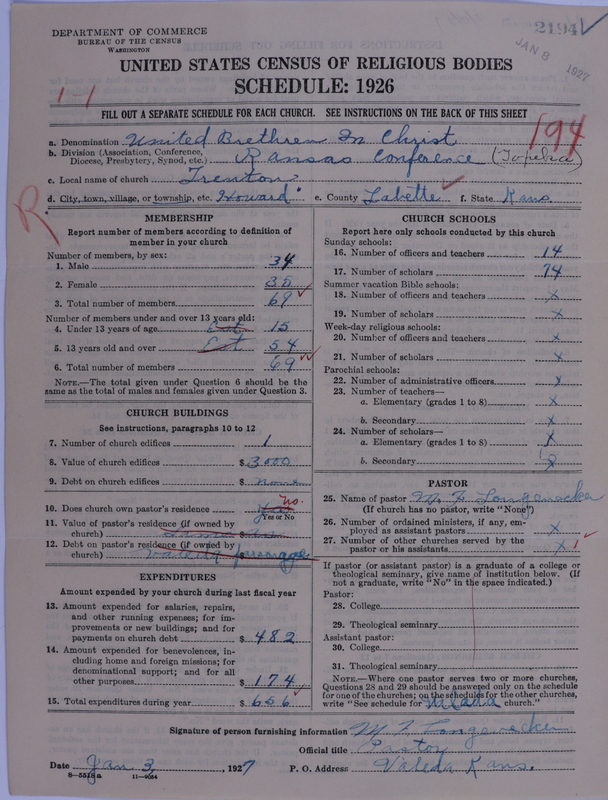 2194
JAN 8 1927
DEPARTMENT OF COMMERCE
BUREAU OF THE CENSUS
WASHINGTON
UNITED STATES CENSUS OF RELIGIOUS BODIES
SCHEDULE: 1926
1-1
FILL OUT A SEPARATE SCHEDULE FOR EACH CHURCH. SEE INSTRUCTIONS ON THE BACK OF THIS SHEET
194
a. Denomination United Brethren In Christ
b. Division (Association, Conference, Diocese, Presbytery, Synod, etc.) Kansas Conference (Topeka)
c. Local name of church Trenton
d. City, town, village, or township, etc. Howard e. County Labette f. State Kans.
R
MEMBERSHIP
Report number of members according to definition of
member in your church
Number of members, by sex:
1. Male 34
2. Female 35
3. Total number of members 69
Number of members under and over 13 years old:
4. Under 13 years of age Est 15
5. 13 years old and over Est. 54
6. Total number of members 69
NOTE.—The total given under Question 6 should be
same as the total of males and females given under Question 3.
CHURCH BUILDINGS
See instructions, paragraphs 10 to 12
7. Number of church edifices 1
8. Value of church edifices $ 3000
9. Debt on church edifices $ none
no.
10. Does church own pastor's residence
Yes or No
11. Value of pastor's residence (if owned by
church)
12. Debt on pastor's residence (if owned by
church) parsonage $
EXPENDITURES
Amount expended by your church during last fiscal year
13. Amount expended for salaries, repairs,
and other running expenses; for im-
provements or new buildings; and for
payments on church debt $ 482
14. Amount expended for benevolences, in-
cluding home and foreign missions; for
denominational support; and for all
other purposes $ 174
15. Total expenditures during year $ 656
CHURCH SCHOOLS
Report here only schools conducted by this church
Sunday schools:
16. Number of officers and teachers 14
17. Number of scholars 74
Summer vacation Bible schools:
18. Number of officers and teachers x
19. Number of scholars x
Week-day religious schools:
20. Number of officers and teachers x
21. Number of scholars x
Parochial schools:
22. Number of administrative officers x
23. Number of teachers—
a. Elementary (grades 1 to 8) x
b. Secondary x
24. Number of scholars—
a. Elementary (grades 1 to 8) x
b. Secondary
PASTOR
25. Name of pastor Longenecker
(If church has no pastor, write "None")
26. Number of ordained ministers, if any, em-
ployed as assistant pastors x
27. Number of other churches served by the
pastor or his assistants x 1
If pastor (or assistant pastor) is a graduate of a college or
theological seminary, give name of institution below. (If
not a graduate, write "No" in the space indicated.)
Pastor:
28. College
29. Theological seminary
Assistant pastor:
30. College
31. Theological seminary
NOTE.—Where one pastor serves two or more churches,
Questions 28 and 29 should be answered only on the schedule
for one of the churches; on the schedules for the other churches,
write "See schedule for church."
Signature of person furnishing information Longenecker
Official title Pastor
Date Jan 3, 1927 P. O. Address Valeda Kans.
8—5518a 11—9084